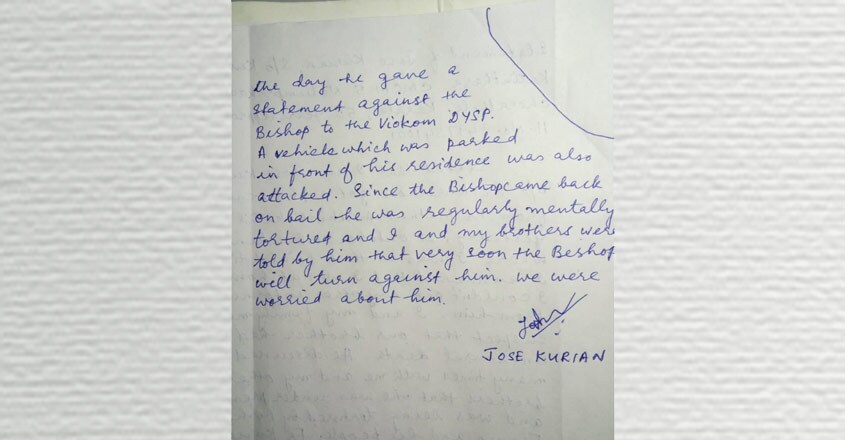 the day he gave a
statement against the
Bishop to the Viokom DYSP.
A vehicle which was parked
in front of his residence was also
attacked. Since the Bishop came back
on bail he was regularly mentally
tortured and I and my brothers were
told by him that very soon the Beshop
will turn against him. we were
worried about him.
JOSE KURIAN